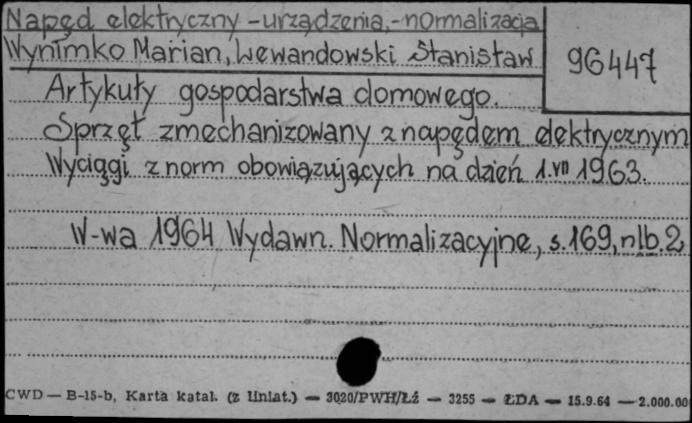 Napęd elektryczny - urządzenia, - normalizacja
Wynimko Marian, Lewandowski Stanisław
96447
Artykuły gospodarstwa domowego.
Sprzęt zmechanizowany z napędem elektrycznym
Wyciągi z norm obowiązujących na dzień 1.VII 1963.
W-wa 1964 Wydawn. Normalizacyjne, s.169, nlb.2
CWD — B-15-b, Karta katal. (z liniat.) — 3020/PWH/Łź — 3255 — ŁDA — 15.9.64 — 2.000.00